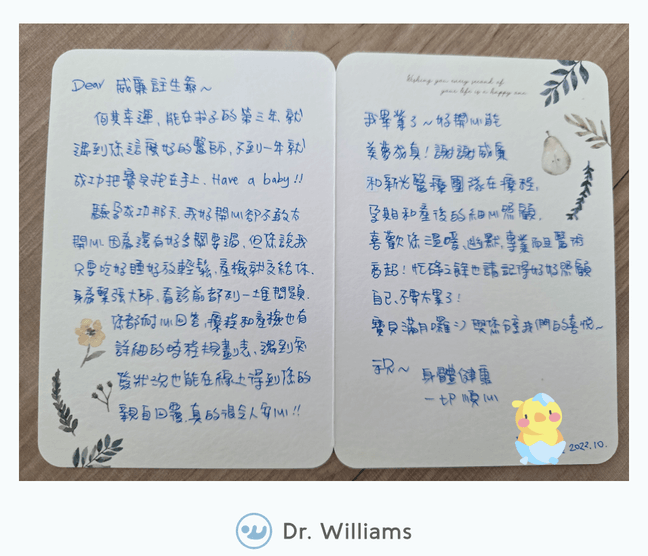 Dear 威廉註生爺~
個其幸運，能在求子的第三年就
遇到你這麼好的醫師，不到一年就
成功把寶貝抱在手上．Have a baby!!
驗孕成功那天，我好開心卻不敢太
開心因為還有好多關要過，但你說我
只要吃好睡好放輕鬆，產檢就交給你．
身為緊張大師，看診前都列一堆問題．
你都耐心回答，療程和產檢也有
詳細的時程規劃表，遇到突
發狀況也能在線上得到您的
親自回覆，真的很令人安心!!
Wishing you every second of
your life is a happy one
我畢業了~好開心能
美夢成真！謝謝威廉
和新光醫療團隊在療程，
孕期和產後的細心照顧．
喜歡你溫暖、幽默，專業而且醫術
高超！忙碌之餘也請記得好好照顧
自己，不要太累了！
寶貝滿月囉:) 與您分享我們的喜悅~
祝~
身體健康
一切順心
2022.10.
Dr. Williams